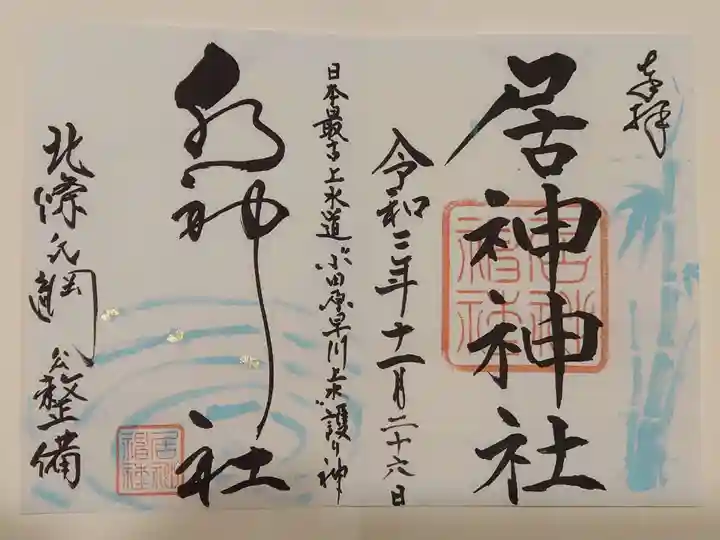 奉拝
居神神社
居神神社
令和二年十一月二十六日
日本最古上水道"小田原早川上水"護り神
水神社
北條氏綱公整備
居神神社